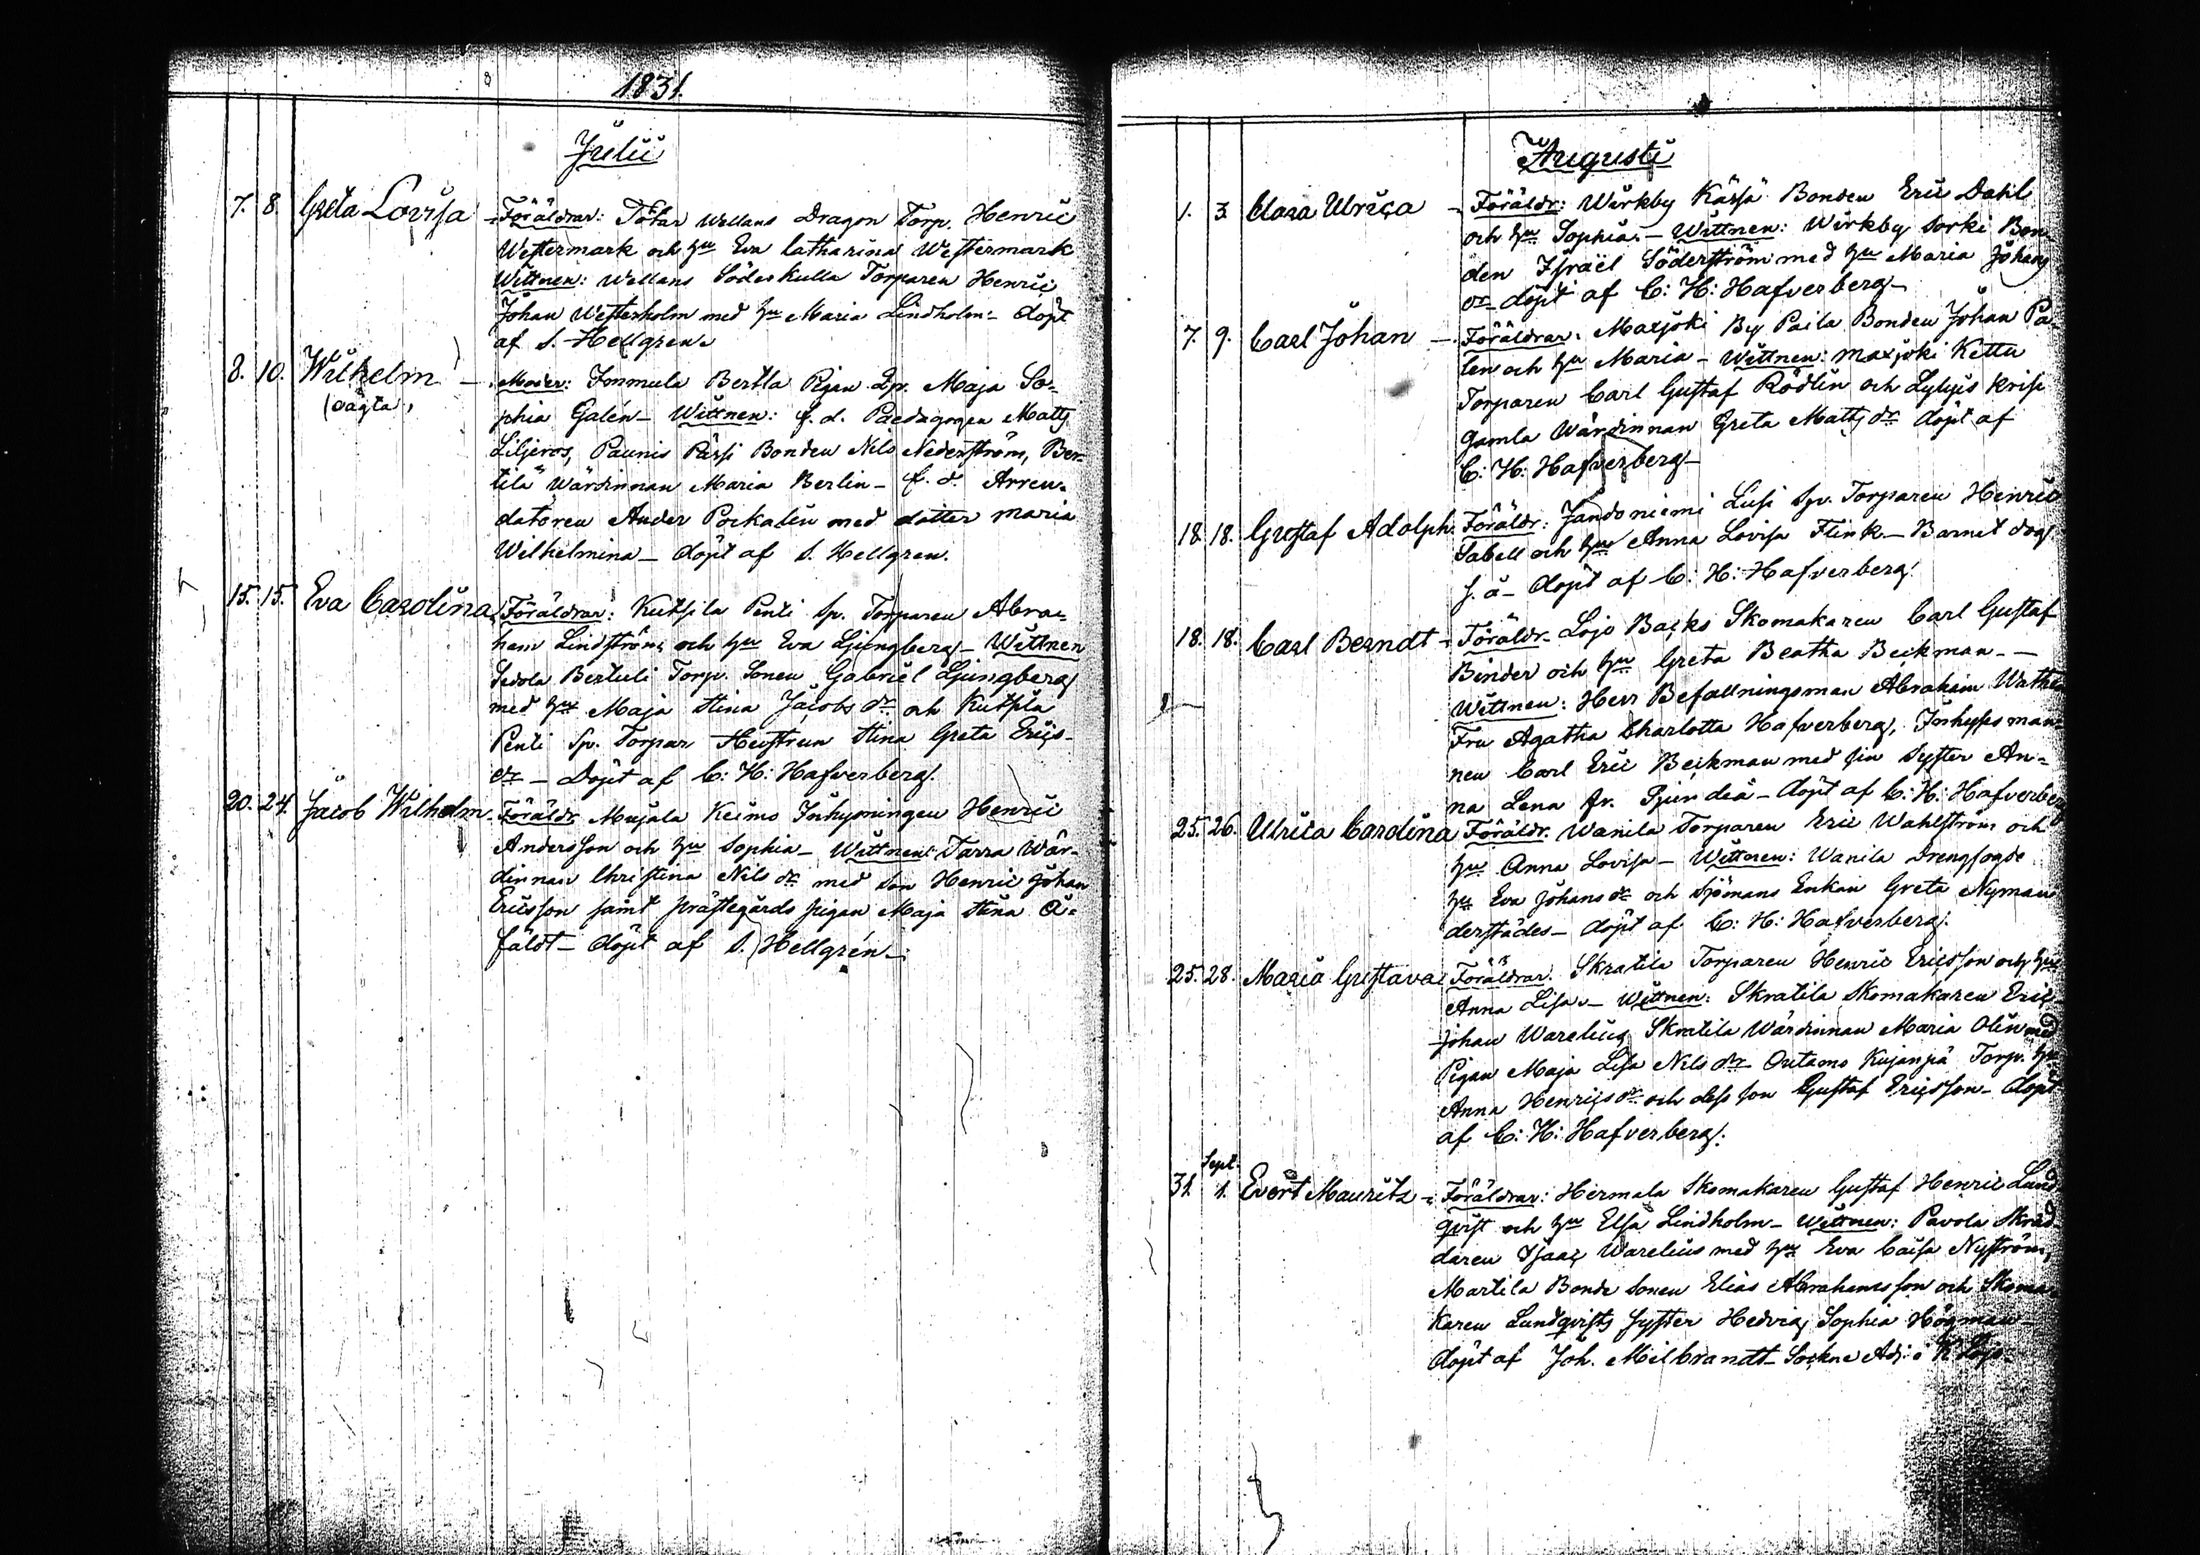 1831.
Julii
7. 8. Greta Lovisa - Föräldrar: Tötar Wellans Dragon Torp. Henric
Westermark och hu Eva Catharina Westermark
Wittnen: Wellans Söderkulla Torparen Henric
Johan Westerholm med hu Maria Lindholm - döpt
af S. Hellgren.
8. 10. Wilhelm - Moder: Immula Bertla Pigan Maja So-
(oägta)
phia Galén - Wittnen: f. d. Paedagogen Matts
Liljeros, Paunis Pässi Bonden Nils Nederström, Ber-
tilä Wärdinnan Maria Berlin - f. d. Arren-
datoren Ander med dotter Maria
Wilhelmina - döpt af S. Hellgren.
15. 15. Eva Carolina Föräldrar: Kutsila Penti Sp. Torparen Abra-
ham Lindström och hu Eva Ljungberg - Wittnen
Torp. Sonen Gabriel Ljungberg
med hu Maja Stina Jacobs dr och Kutsila
Penti Sp. Torpar Hustrun Stina Greta Erics-
dr - Döpt af C: H: Hafverberg.
20. 24. Jacob Wilhelm - Föräldr. Mujala Keimo Inhysningen Henric
Andersson och hu Sophia - Wittnen: Tarra Wär-
dinnan Christina Nils dr med Son Henric Johan
Ericsson samt prästegårds pigan Maja Stina
döpt af S. Hellgrén -
Augusti
1. 3. Clara Ulrica - Föräldr: Wirkby Kässä Bonden Eric Dahl
och hu Sophia. - Wittnen: Wirkby Sorki Bon-
den Israël Söderström med hu Maria Johans
dr - döpt af C: H: Hafverberg -
7. 9. Carl Johan - Föräldrar: Maxjoki By Paila Bonden Johan Pa-
len och hu Maria - Wittnen: Maxjoki Kettu
Torparen Carl Gustaf Rödlin och Lylyis Krisi
Gamla Wärdinnan Greta Matts dr döpt af
C: H: Hafverberg -
18. 18. Gustaf Adolph. Föräldr: Jandoniemi Lusi Sp. Torparen Henric
Sabell och hu Anna Lovisa Flink - Barnet dog
s. å - döpt af C: H: Hafverberg.
18. 18. Carl Berndt - Föräldr - Lojo Backs Skomakaren Carl Gustaf
Binder och hu Greta Beatha Beckman - -
Wittnen: Herr Befallningsman Abraham
Fru Agatha Charlotta Hafverberg, Inhysesman-
nen Carl Eric Beckman med sin Syster An-
na Lena fr. - döpt af C: H: Hafverberg
25. 26. Ulrica Carolina Föräldr. Wanila Torparen Eric Wahlström och
hu Anna Lovisa - Wittnen: Wanila
hu Eva Johans dr och Sjömans Enkan Greta Nyman
derstädes - döpt af C: H: Hafverberg.
25. 28. Maria Gustava Föräldrar. Skratila Torparen Henric Ericsson och hu
Anna Lisa - Wittnen: Skratila Skomakaren Eric
Johan Warelius Skratila Wärdinnan Maria Olin med
Pigan Maja Lisa Nils dr Outamo Kujanpä Torp. hu
Anna Henrics dr och dess son Gustaf Ericsson - döpt
af C: H: Hafverberg.
Sept.
31. 1. Evert Mauritz - Föräldrar: Hermala Skomakaren Gustaf Henric Lund
qvist och hu Elsa Lindholm - Wittnen: Pavola Skräd-
daren Isaac Warelius med hu Eva Caisa Nyström,
Martila Bonde Sonen Elias Abrahamsson och Skoma-
karen Lundqvists syster Hedvig Sophia Högman -
döpt af Joh. Milbrandt Sockne Adj: i K Lojo